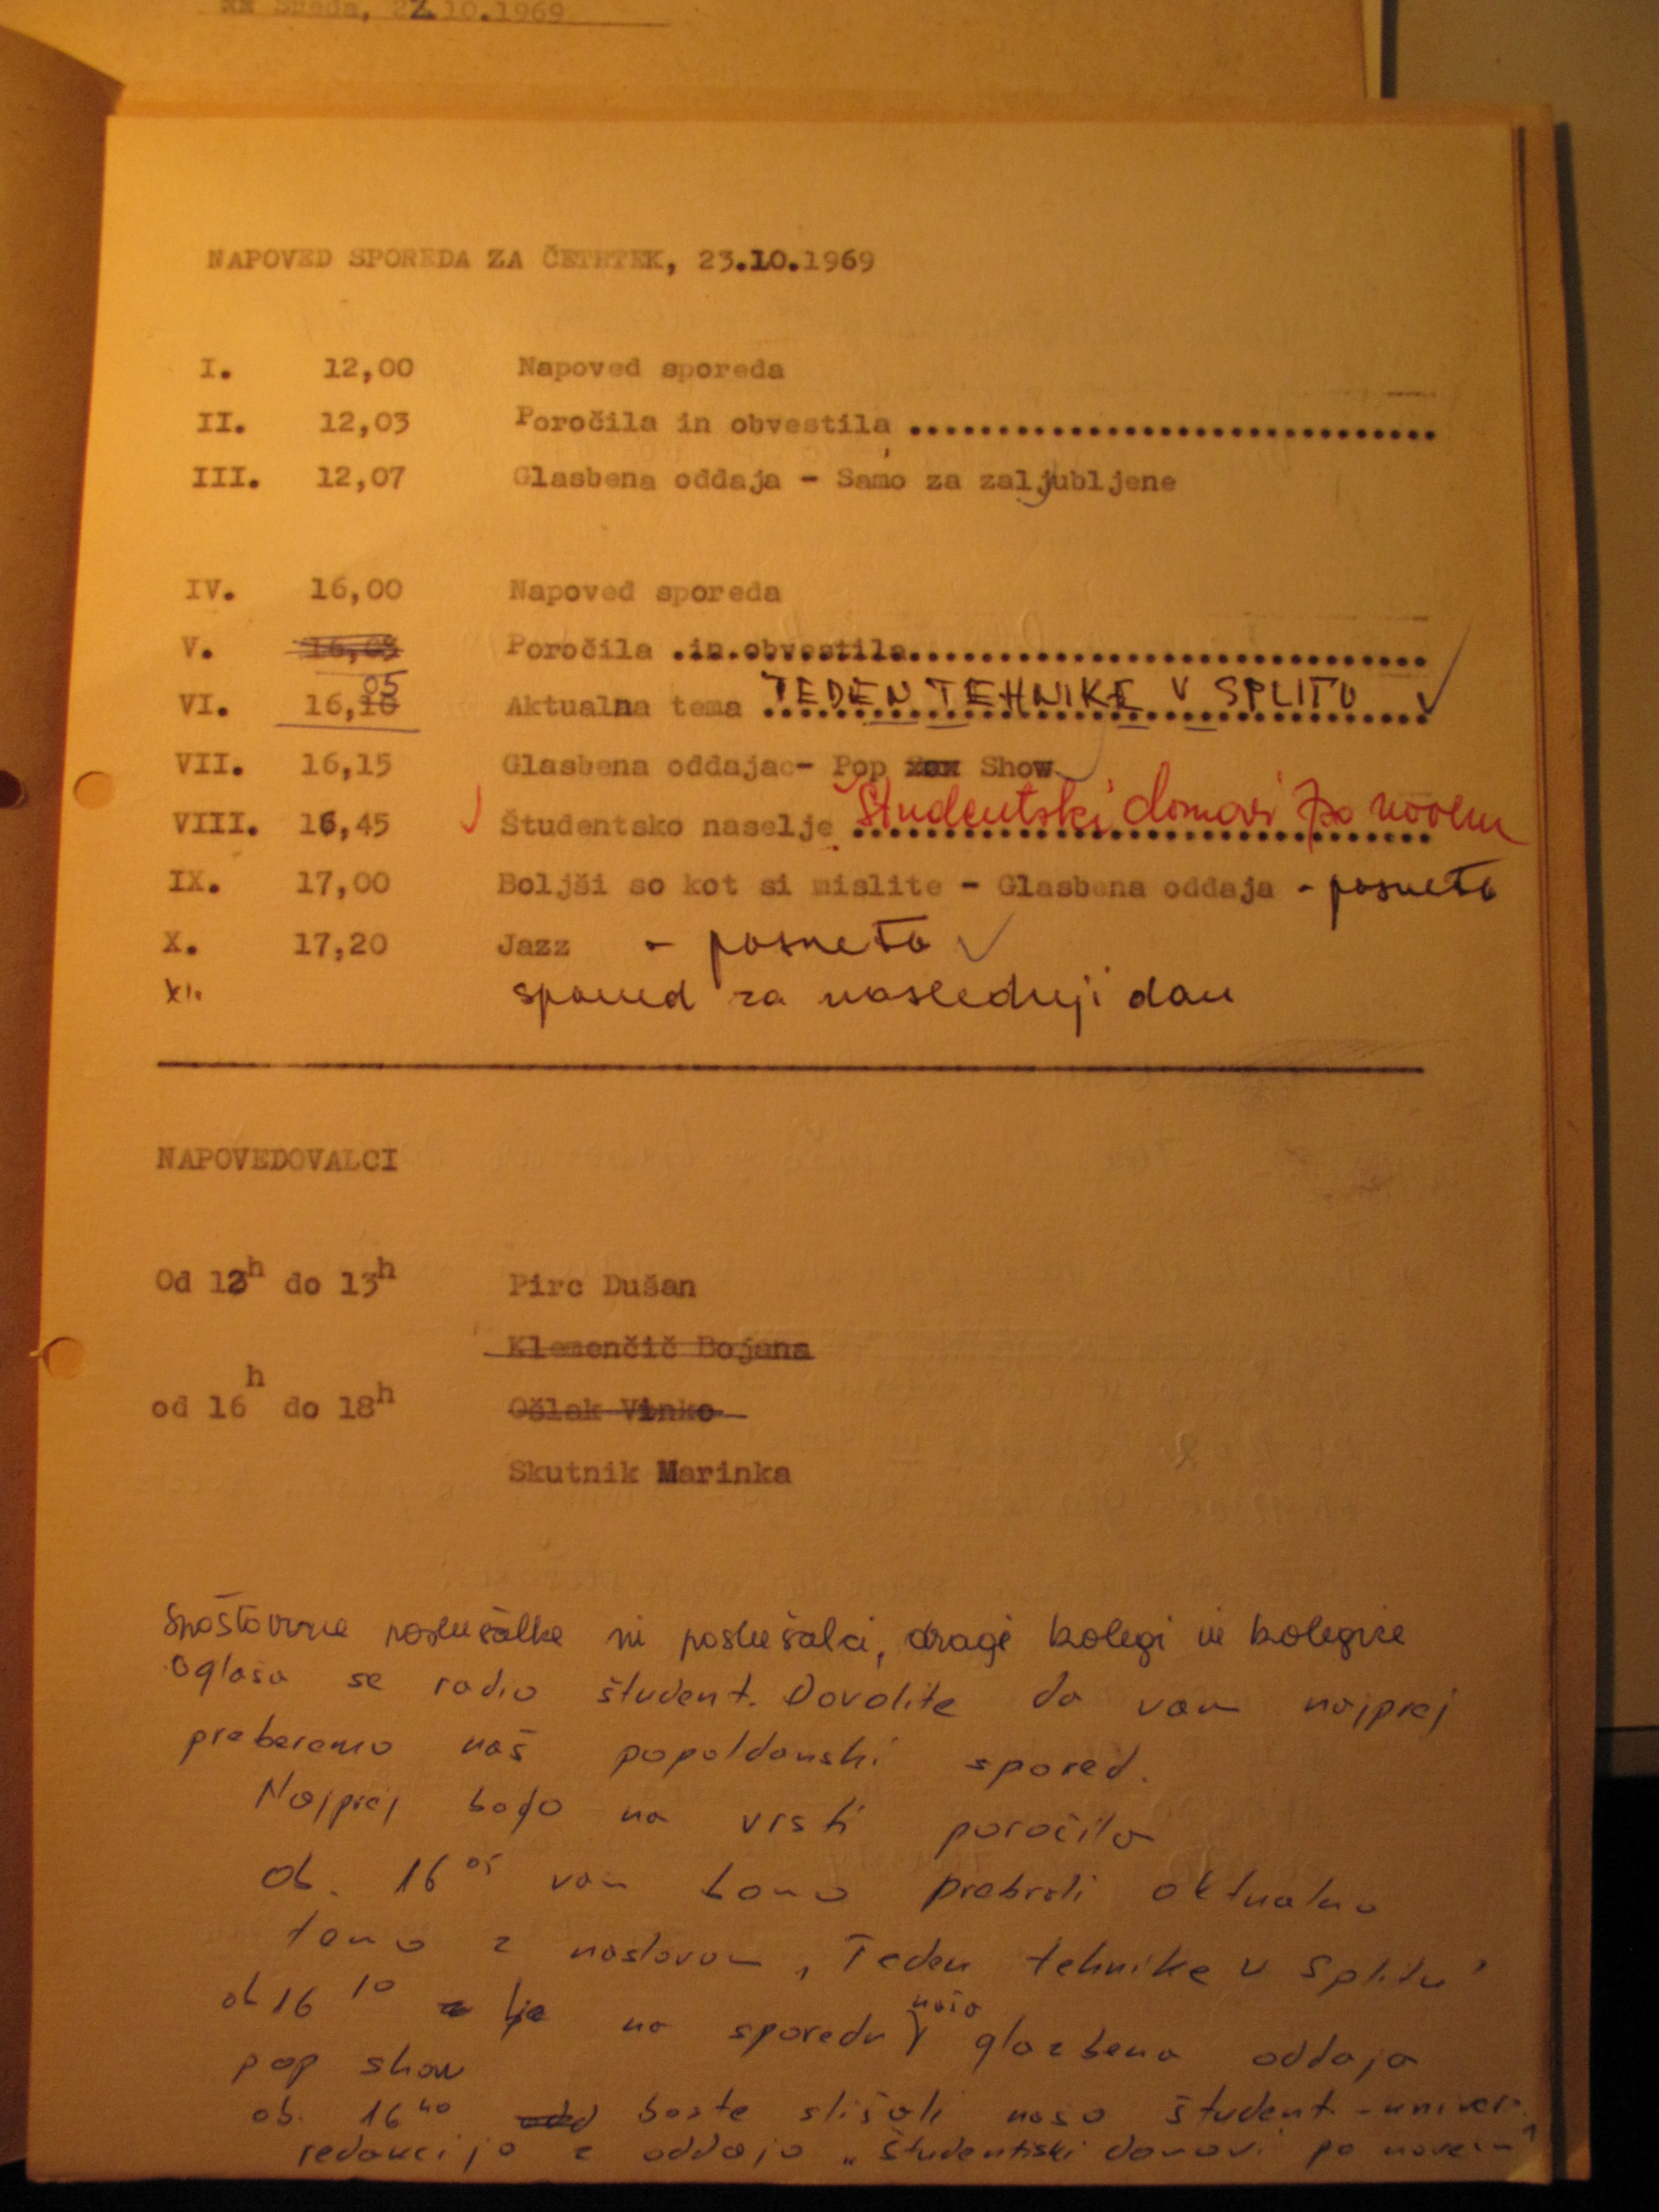 Sreda, 22.10.1969
NAPOVED SPOREDA ZA ČETRTEK, 23.10.1969
I. 12,00 Napoved sporeda
II. 12,03 Poročila in obvestila ..............................
III. 12,07 Glasbena oddaja - Samo za zaljubljene
IV. 16,00 Napoved sporeda
V. 16,03 Poročila .in.obvestila..............................
VI. 16,10 05 Aktualna tema TEDEN TEHNIKE V SPLITU
VII. 16,15 Glasbena oddaja - Pop Show
VIII. 16,45 Študentsko naselje Študentski domovi po novem
IX. 17,00 Boljši so kot si mislite - Glasbena oddaja - posneto
X. 17,20 Jazz - posneto
XI. spored za naslednji dan
NAPOVEDOVALCI
Od 12h do 13h Pirc Dušan
Klemenčič Bojana
od 16h do 18h Ošlak Vinko
Skutnik Marinka
Spoštovane poslušalke in poslušalci, dragi kolegi in kolegice
oglaša se radio študent. Dovolite da vam najprej
preberemo naš popoldanski spored.
Najprej bodo na vrsti poročila
ob. 16 05 vam bomo prebrali aktualno
temo z naslovom „Teden tehnike v Splitu"
ob 16 10 je na sporedu naša glazbena oddaja
pop show
ob. 16 40 boste slišali našo študent - univer.
redakcijo z oddajo „študentski domovi po novem"